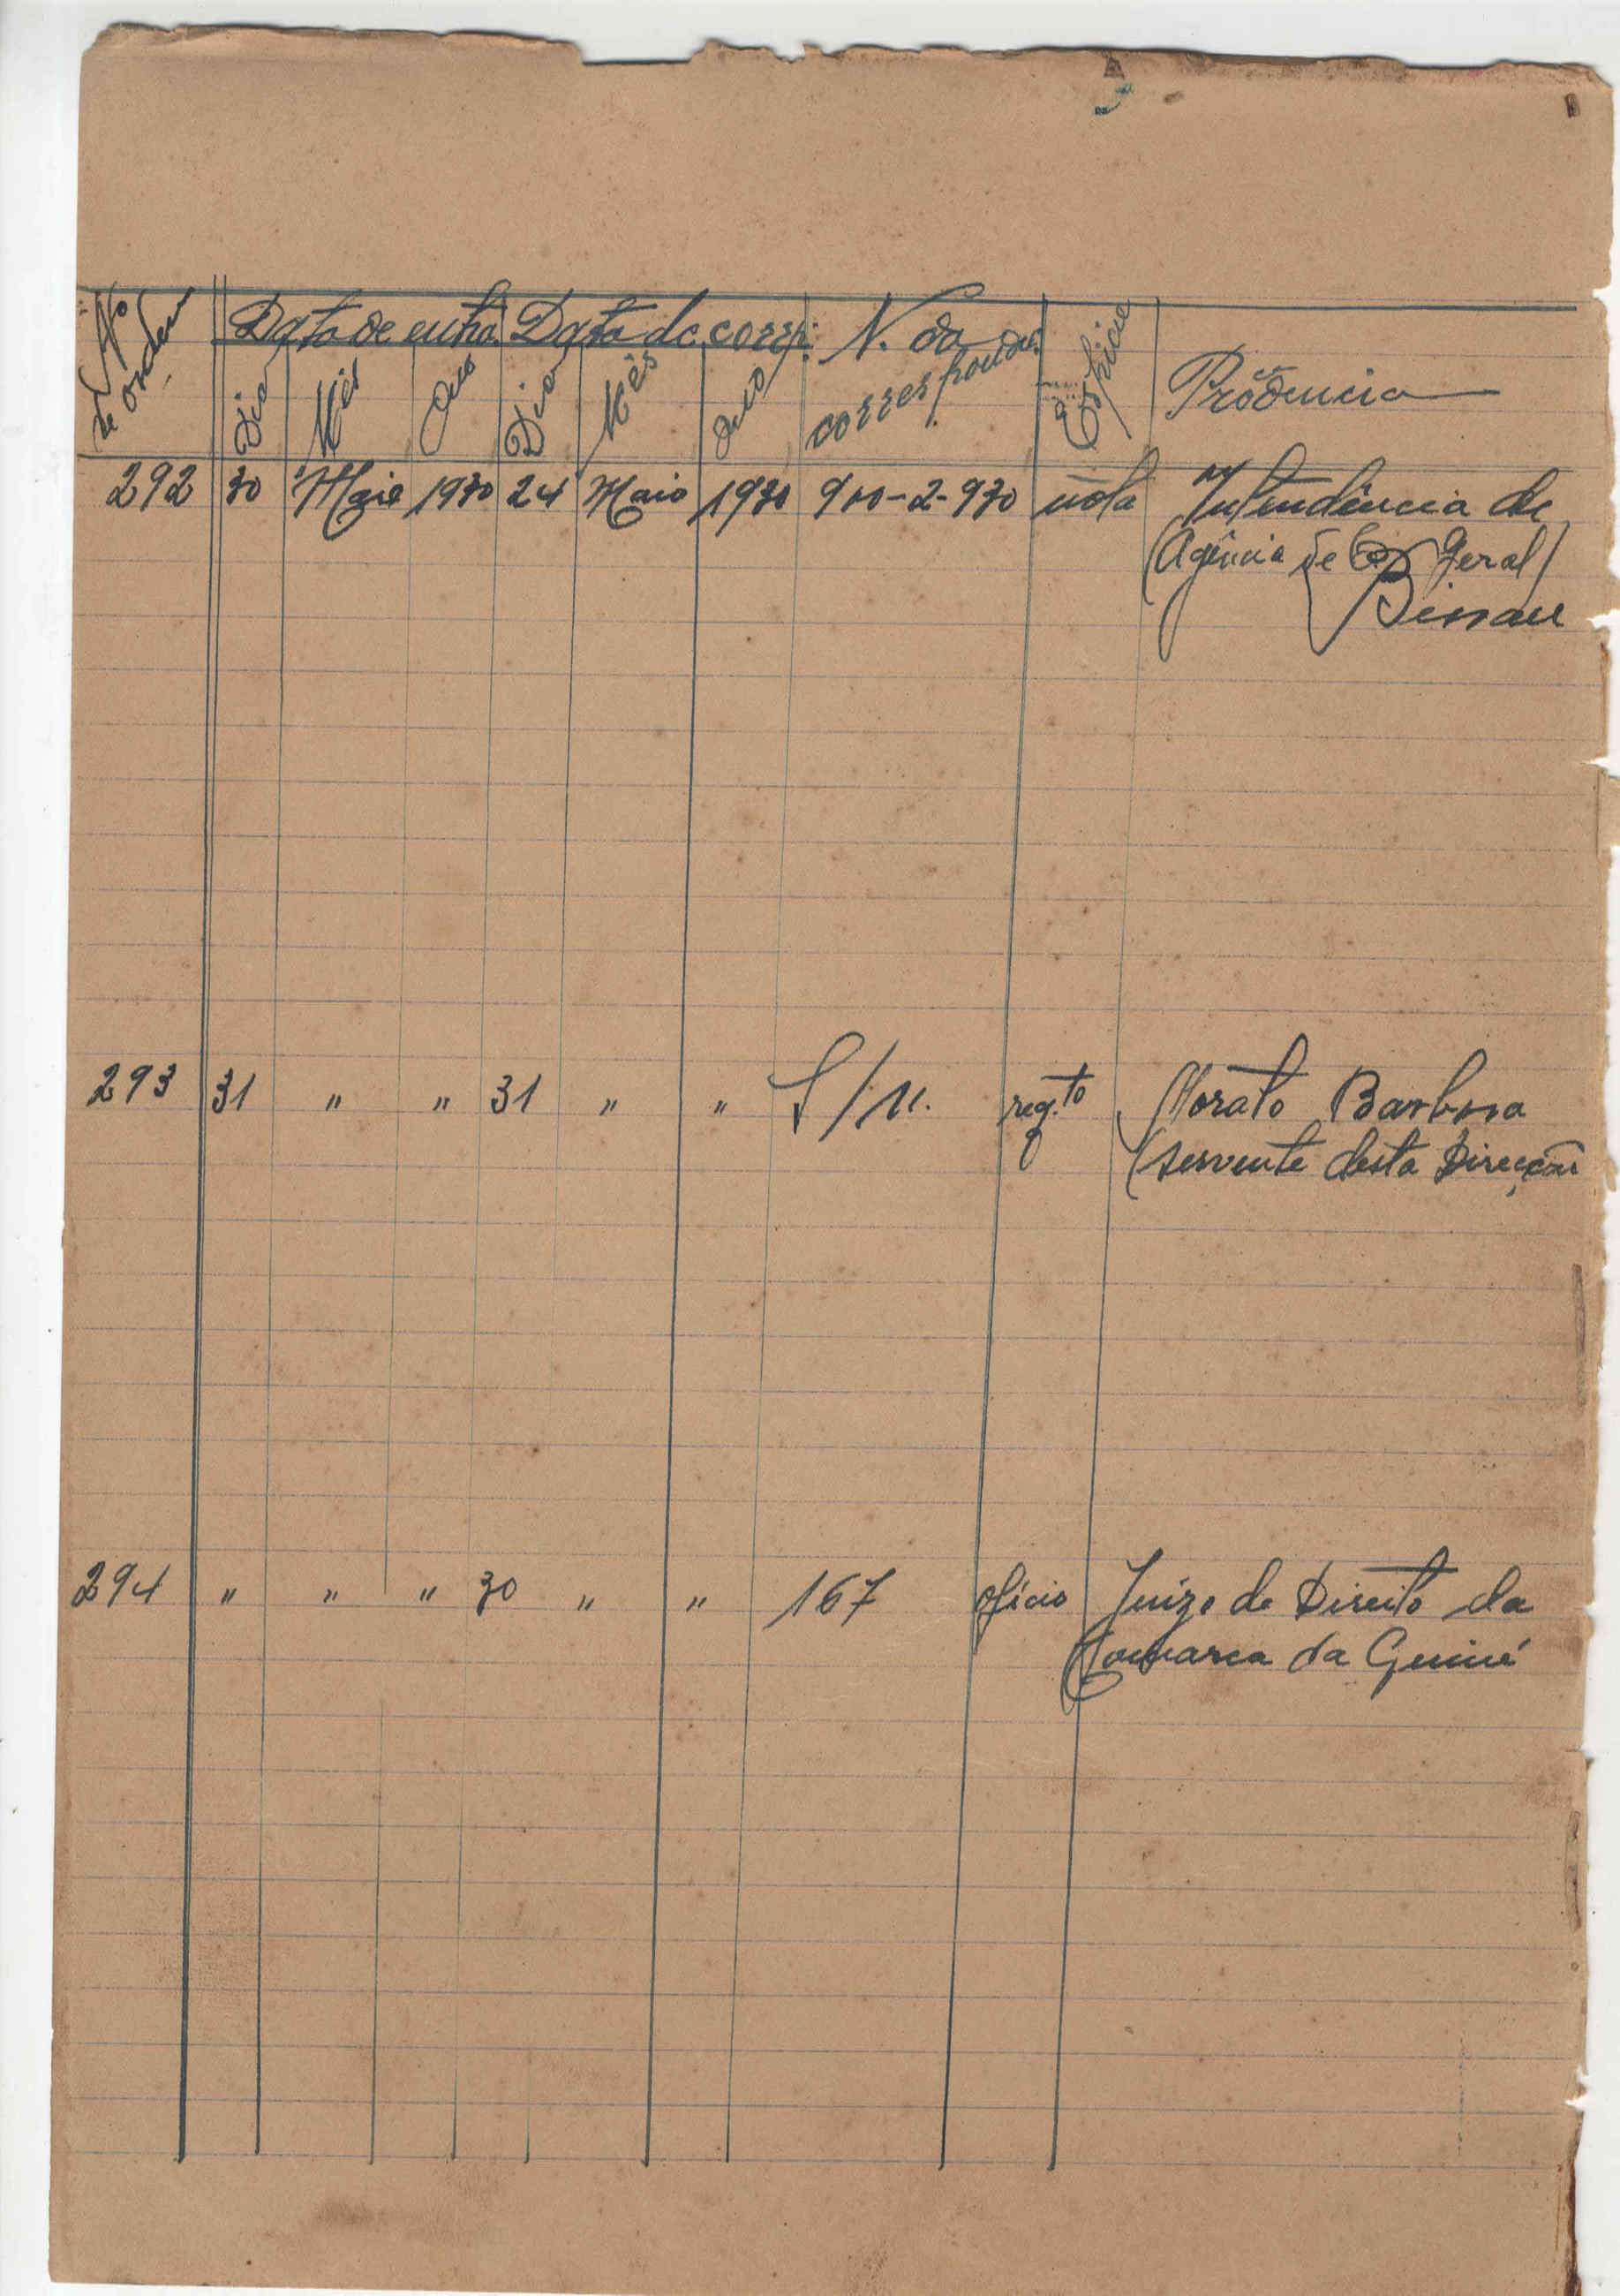 Nº de ordem Data de entrª Data da corrp. N. da correspondª. Espécie Procedencia
Dia Mês Ano Dia Mês Ano
292 30 Maio 1930 24 Maio 1930 900-2-930 nota Intendência de
(Agência de Geral)
Bissau
293 31 " " 31 " " S/n. reqto Morato Barbosa
(servente desta Direcção
294 " " " 30 " " 167 ofício Juizo de Direito da
Comarca da Guiné